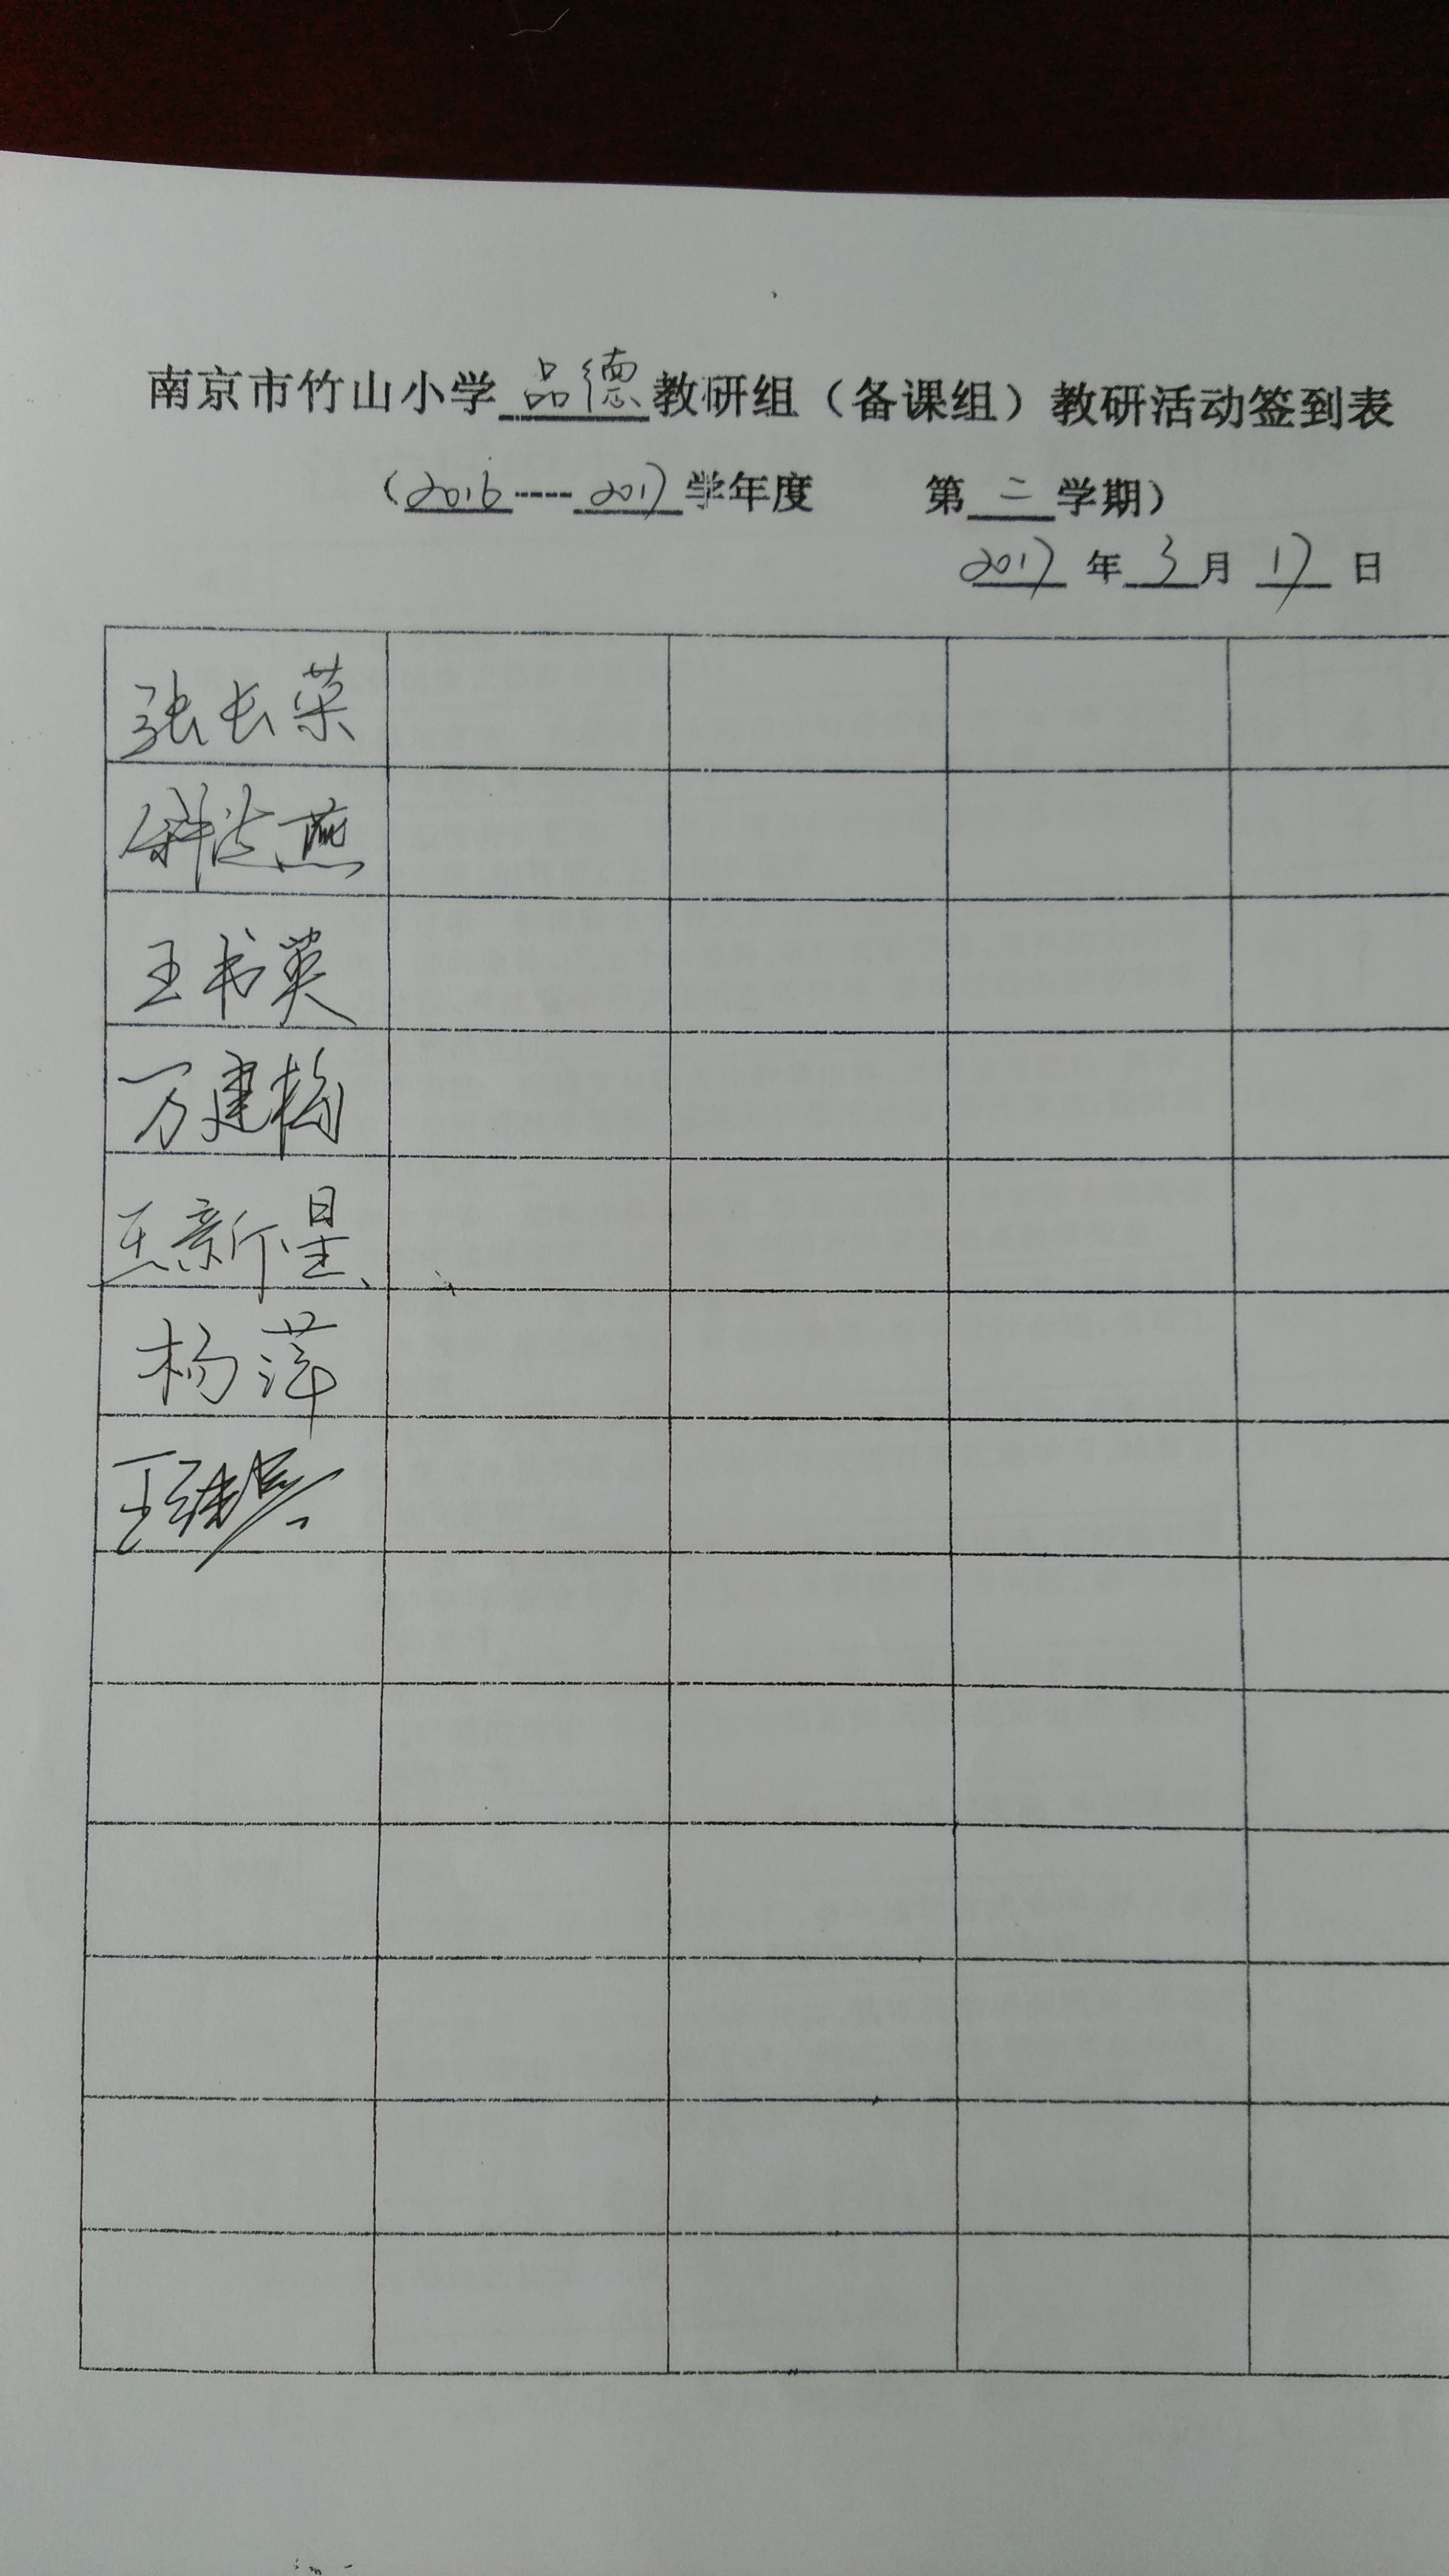 南京市竹山小学品德教研组（备课组）教研活动签到表
（2016-----2017学年度 第二学期）
2017年3月17日
张长荣
王书英
万建梅
王新星
杨萍